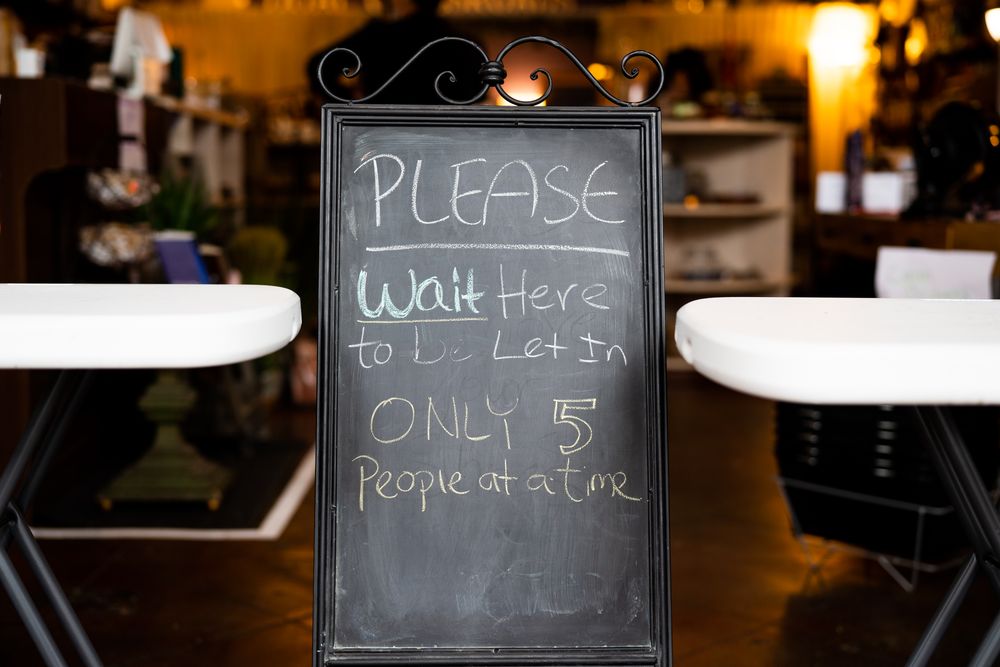 PLEASE
Wait Here
to be Let In
ONLY 5
People at a time